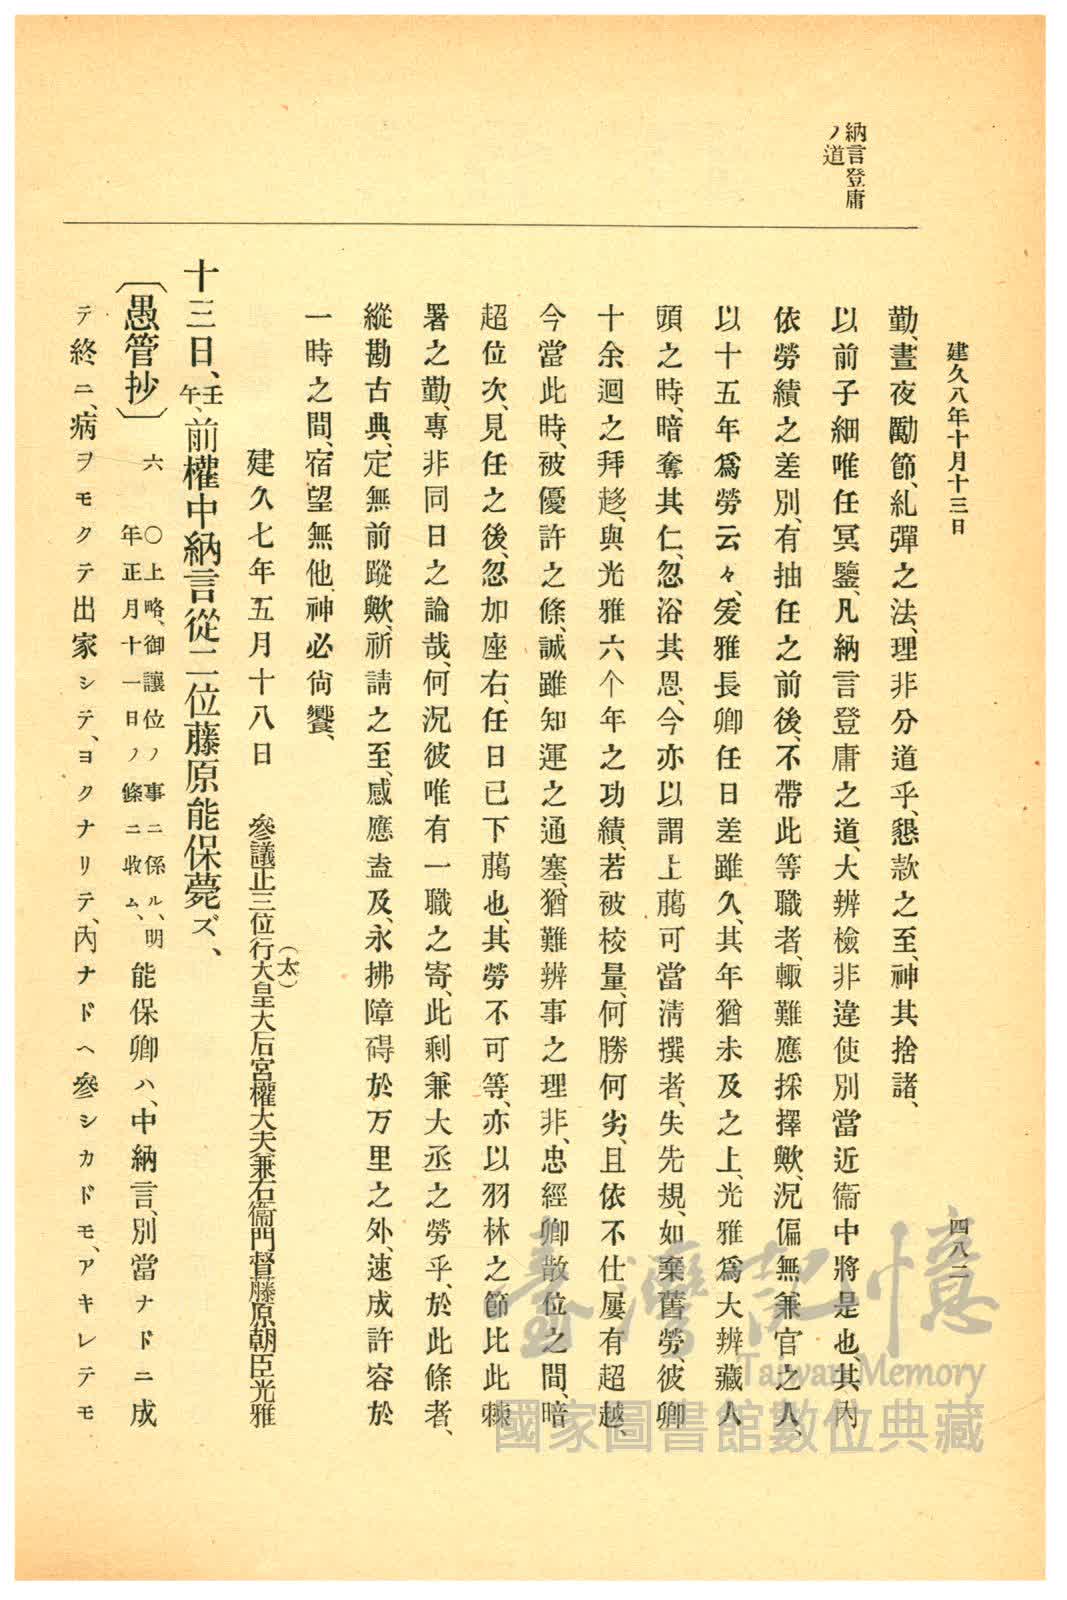 納言登庸
ノ道
建久八年十月十三日
四八二
勤、晝夜勵節、糺彈之法、理非分道乎、懇款之至、神其捨諸、
以前子細唯任冥鑒、凡納言登庸之道、大辨檢非違使別當近衞中將是也、其內
依勞績之差別、有抽任之前後、不帶此等職者、輙難應採擇歟、況偏無兼官之人、
以十五年爲勞云々、爰雅長卿任日差雖久、其年猶未及之上、光雅爲大辨藏人
頭之時、暗奪其仁、忽浴其恩、今亦以謂上﨟可當淸撰者、失先規、如棄舊勞、彼卿
十余𢌞之拜趍、與光雅六个年之功績、若被校量、何勝何劣、且依不仕屢有超越、
今當此時、被優許之條、誠雖知運之通塞、猶難辨事之理非、忠經卿散位之間、暗
超位次、見任之後、忽加座右、任日已下﨟也、其勞不可等、亦以羽林之節比此棘
署之勤、專非同日之論哉、何況彼唯有一職之寄、此剩兼大丞之勞乎、於此條者、
縱勘古典、定無前蹤歟、祈請之至、感應盍及、永拂障碍於万里之外、速成許容於
一時之間、宿望無他、神必尙饗、
建久七年五月十八日　參議正三位行大皇大后宮權大夫兼右衞門督藤原朝臣光雅
（太）
十三日、壬午、前權中納言從二位藤原能保薨ズ、
〔愚管抄〕六　〇上略、御讓位ノ事ニ係ル、明年正月十一日ノ條ニ收ム、能保卿ハ、中納言、別當ナドニ成
テ終ニ、病ヲモクテ出家シテ、ヨクナリテ、內ナドヘ參シカドモ、アキレテモ
臺灣記憶
Taiwan Memory
國家圖書館數位典藏